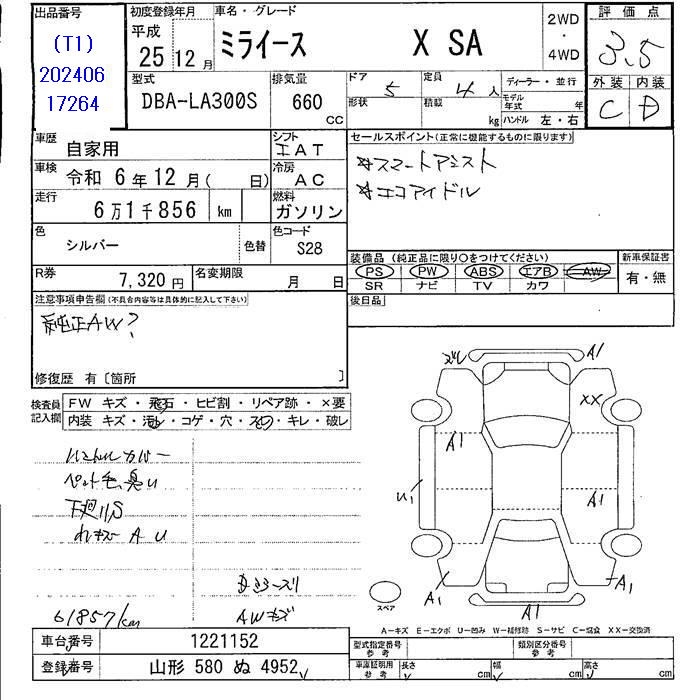 出品番号
(T1)
202406
17264
初度登録年月
平成
25 12 月
車名・グレード
ミライース X SA
2WD
・
4WD
評価点
3.5
外装 内装
C D
型式
DBA-LA300S
排気量
660
CC
ドア 5
形状
定員 4 人
積載 kg
ディーラー・並行
モデル年式 年
ハンドル 左・右
車歴
自家用
シフト
IAT
車検
令和 6 年 12 月 ( 日)
冷房
AC
走行
6万1千856 km
燃料
ガソリン
色
シルバー
色替
色コード
S28
R券
7,320 円
名変期限
月 日
セールスポイント(正常に機能するものに限ります)
☆スマートアシスト
☆エコアイドル
装備品 (純正品に限り○をつけてください)
PS PW ABS エアB AW
SR ナビ TV カワ
新車保証書
有・無
後日品
注意事項申告欄(不具合内容等は具体的に記入して下さい)
純正AW?
修復歴 有〔箇所 〕
検査員
記入欄
FW キズ・飛石・ヒビ割・リペア跡・×要
内装 キズ・汚れ・コゲ・穴・スレ・キレ・破レ
ハンドルカバー
ペット毛、臭い
下廻りS
A U
61857km
ミラースリ
AWキズ
A1
XX
A1
U1
A1
A1
A1
A1
スペア
A−キズ E−エクボ U−凹み W−補修跡 S−サビ C−腐食 XX−交換済
車台番号
1221152
登録番号
山形 580 ぬ 4952
型式指定番号
参考
類別区分番号
参考
車庫証明用
参考
長さ cm 幅 cm 高さ cm